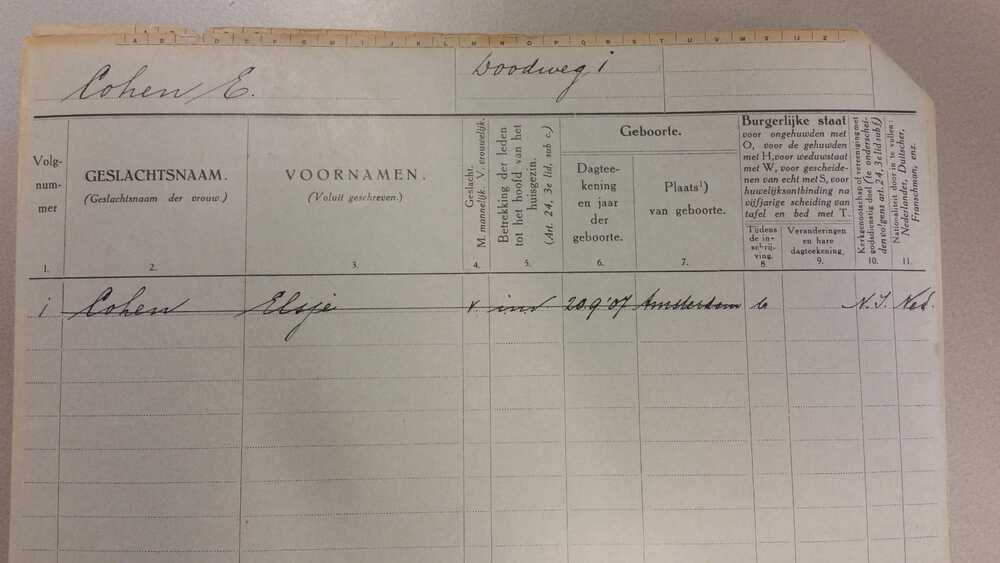 A B C D E F G H I J K L M N O P Q R S T U V W X Y Z
Cohen E. Doodweg 1
Volg-
num-
mer
1.
GESLACHTSNAAM.
(Geslachtsnaam der vrouw.)
2.
VOORNAMEN.
(Voluit geschreven.)
3.
Geslacht.
M. mannelijk. V. vrouwelijk.
4.
Betrekking der leden
tot het hoofd van het
huisgezin.
(Art. 24, 3e lid, sub c.)
5.
Geboorte.
Dagtee-
kening
en jaar
der
geboorte.
6.
Plaats¹)
van geboorte.
7.
Burgerlijke staat
voor ongehuwden met
O, voor de gehuwden
met H, voor weduwstaat
met W, voor gescheide-
nen van echt met S, voor
huwelijksontbinding na
vijfjarige scheiding van
tafel en bed met T.
Tijdens
de in-
schrij-
ving.
8.
Veranderingen
en hare
dagteekening.
9.
Kerkgenootschap of vereeniging met
godsdienstig doel (te onderschei-
den volgens art. 24, 3e lid sub f.)
10.
Nationaliteit door in te vullen:
Nederlander, Duitscher,
Franschman, enz.
11.
1 Cohen Elsje v. inw. 20.9.'07 Amsterdam N.I. Ned.